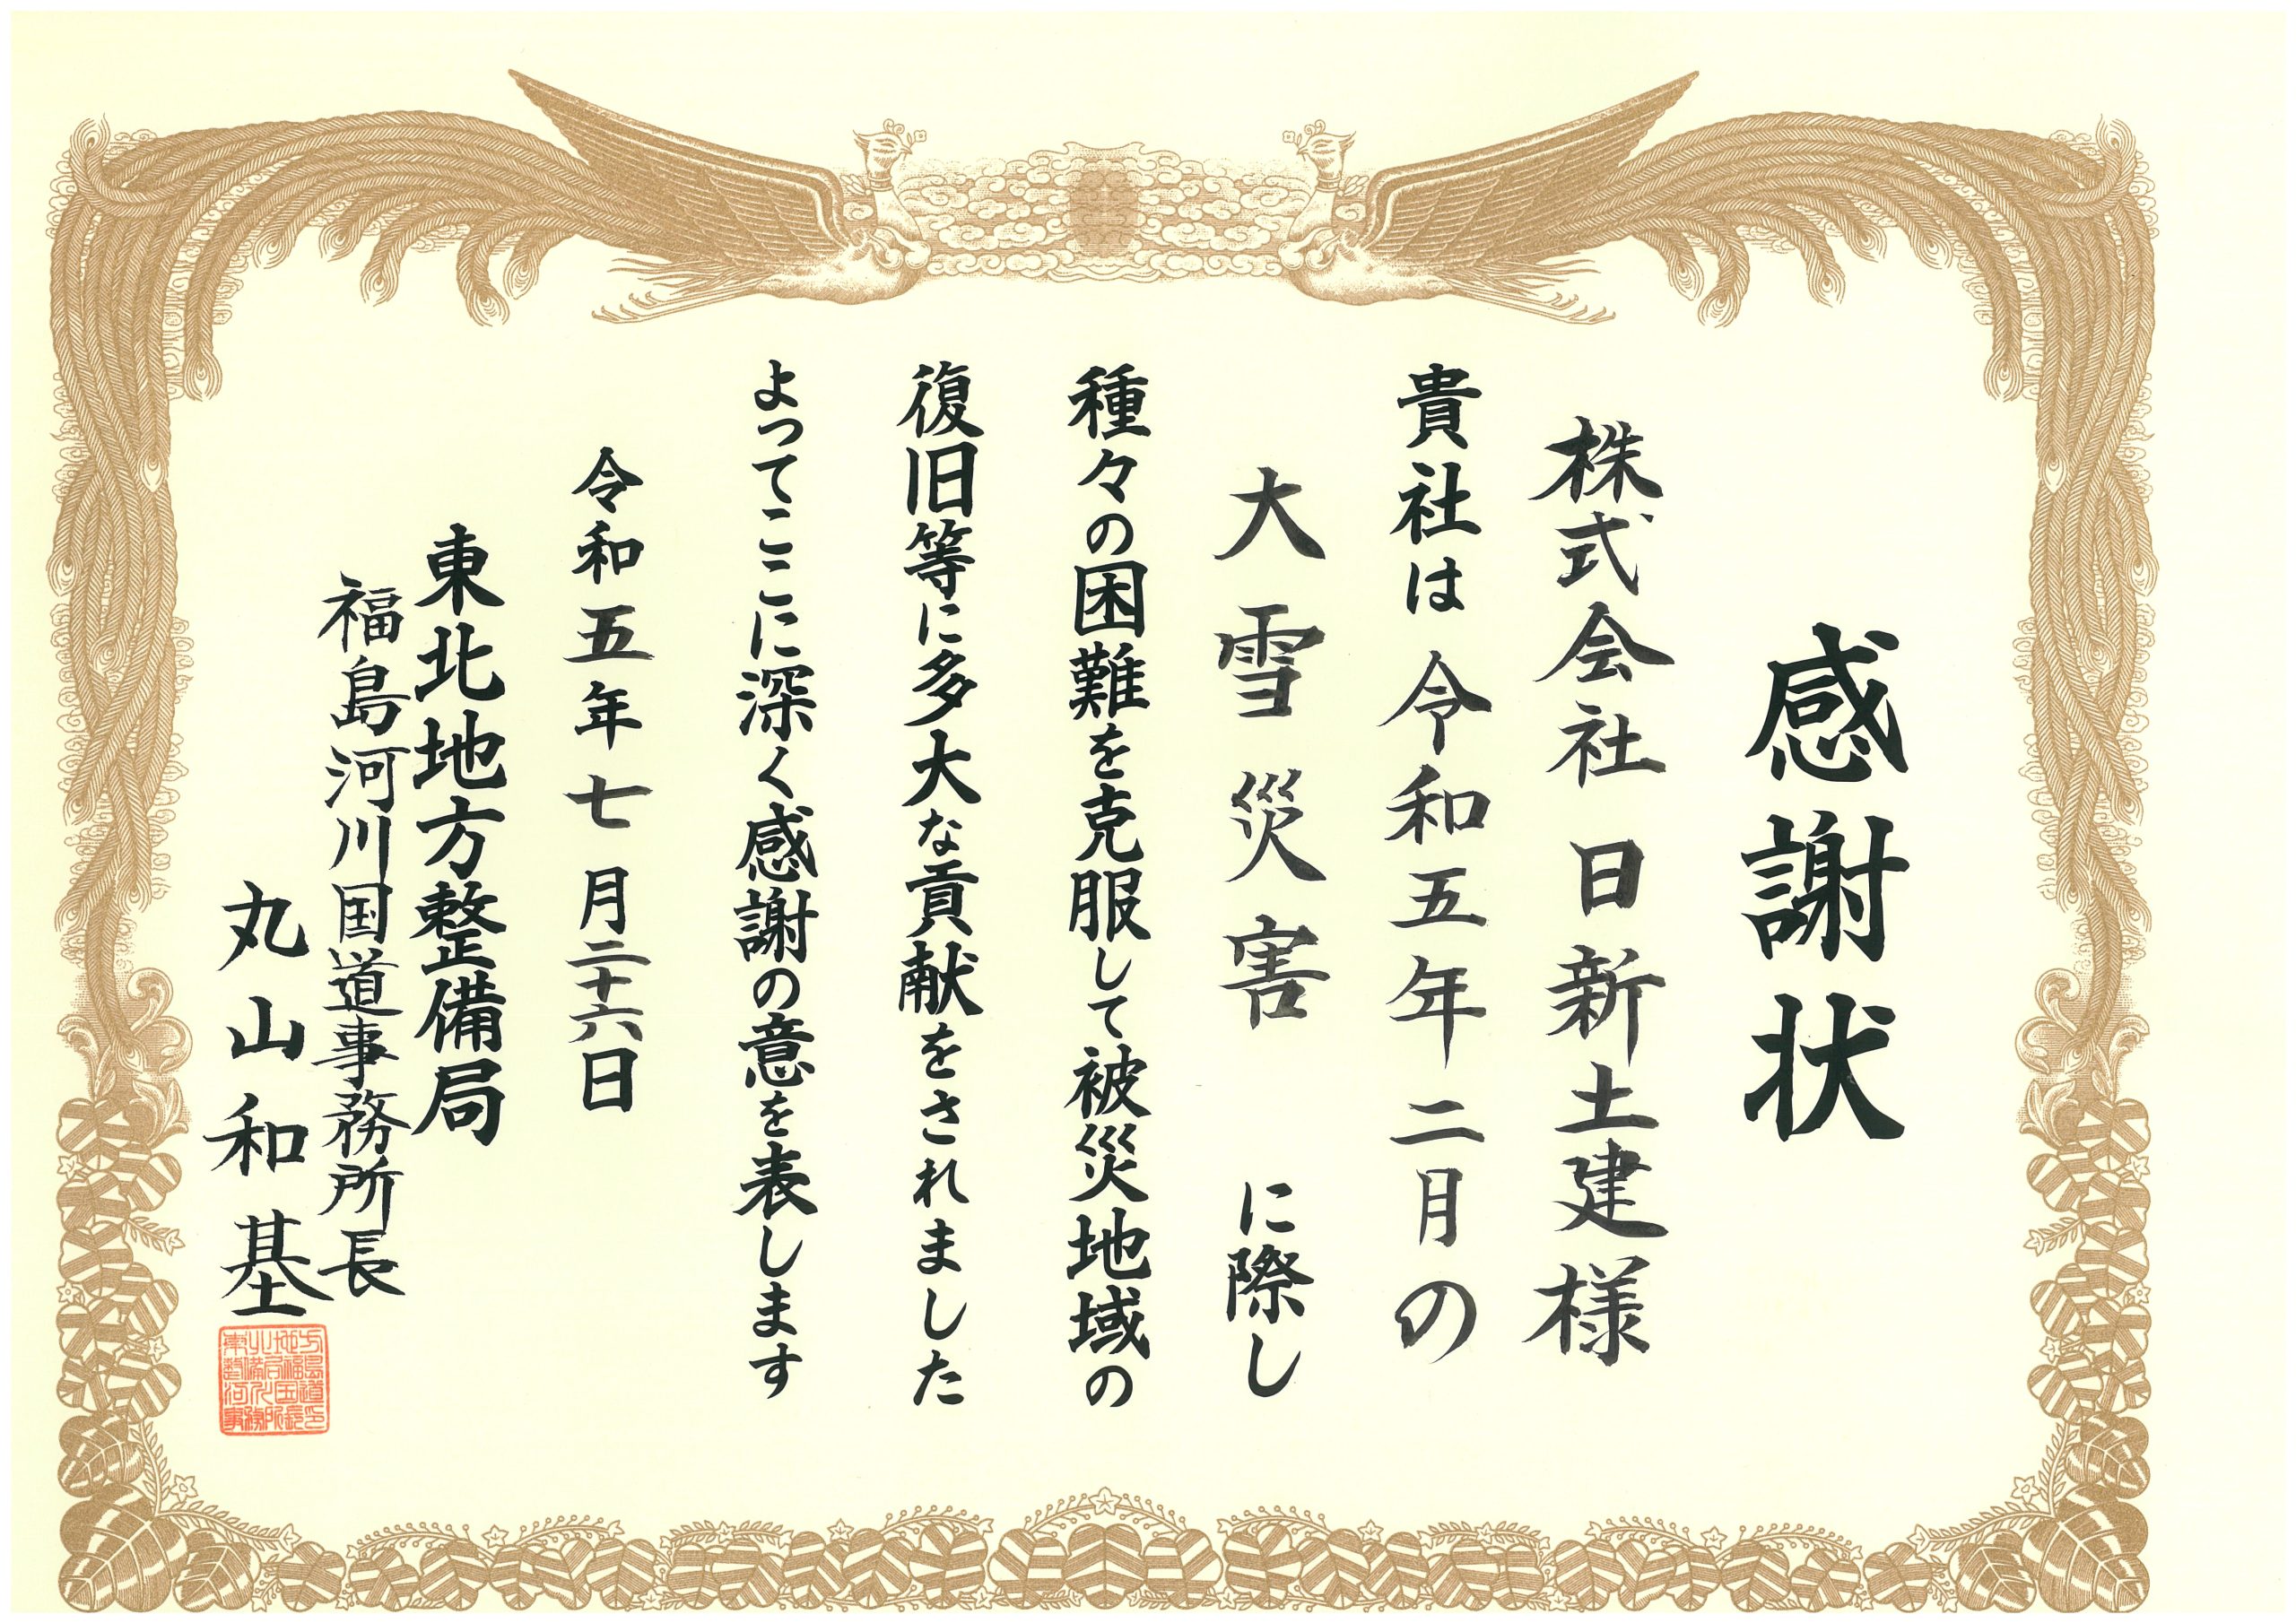 感謝状
株式会社 日新土建様
貴社は令和五年二月の
大雪災害 に際し
種々の困難を克服して被災地域の
復旧等に多大な貢献をされました
よってここに深く感謝の意を表します
令和五年七月二十六日
東北地方整備局
福島河川国道事務所長
丸山和基